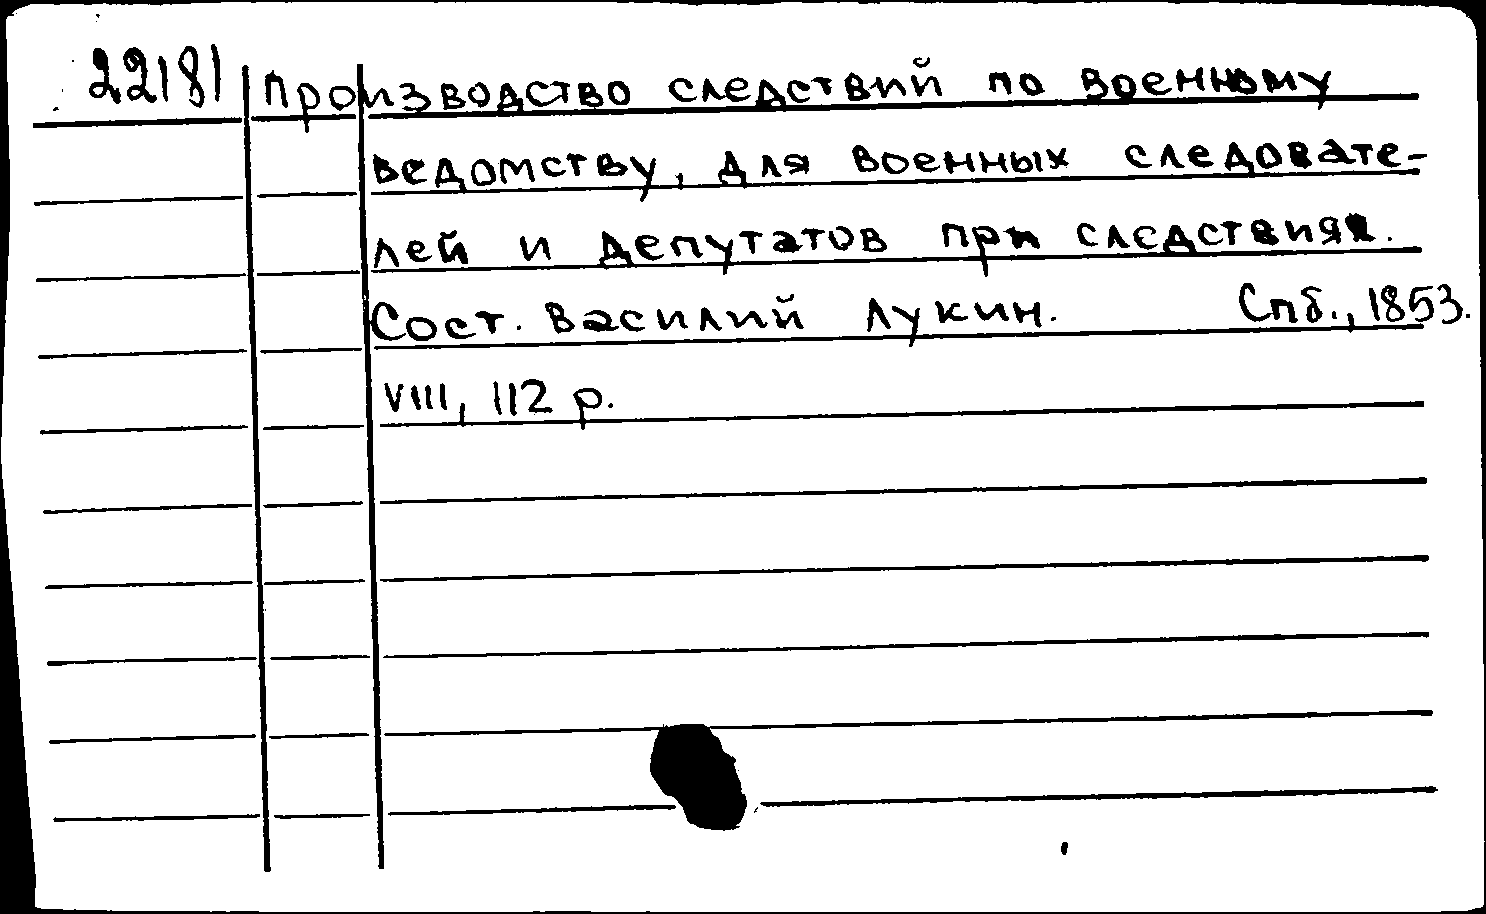 22181 Производство следствий по военному
ведомству, для военных следовате-
лей и депутатов при следствиях.
Сост. Василий Лукин. Спб., 1853.
VIII, 112 p.